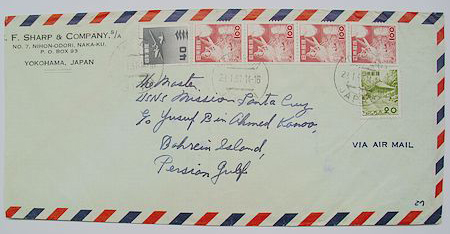 L. F. SHARP & COMPANY, S/A
NO. 7, NIHON-ODORI, NAKA-KU,
P. O. BOX 23
YOKOHAMA, JAPAN
40
100
100
100
100
20
JAPAN
The Master.
Mission Santa Cruz
c/o Yusuf Bin Ahmed Kanoo,
Bahrein Island,
Persian Gulf.
VIA AIR MAIL